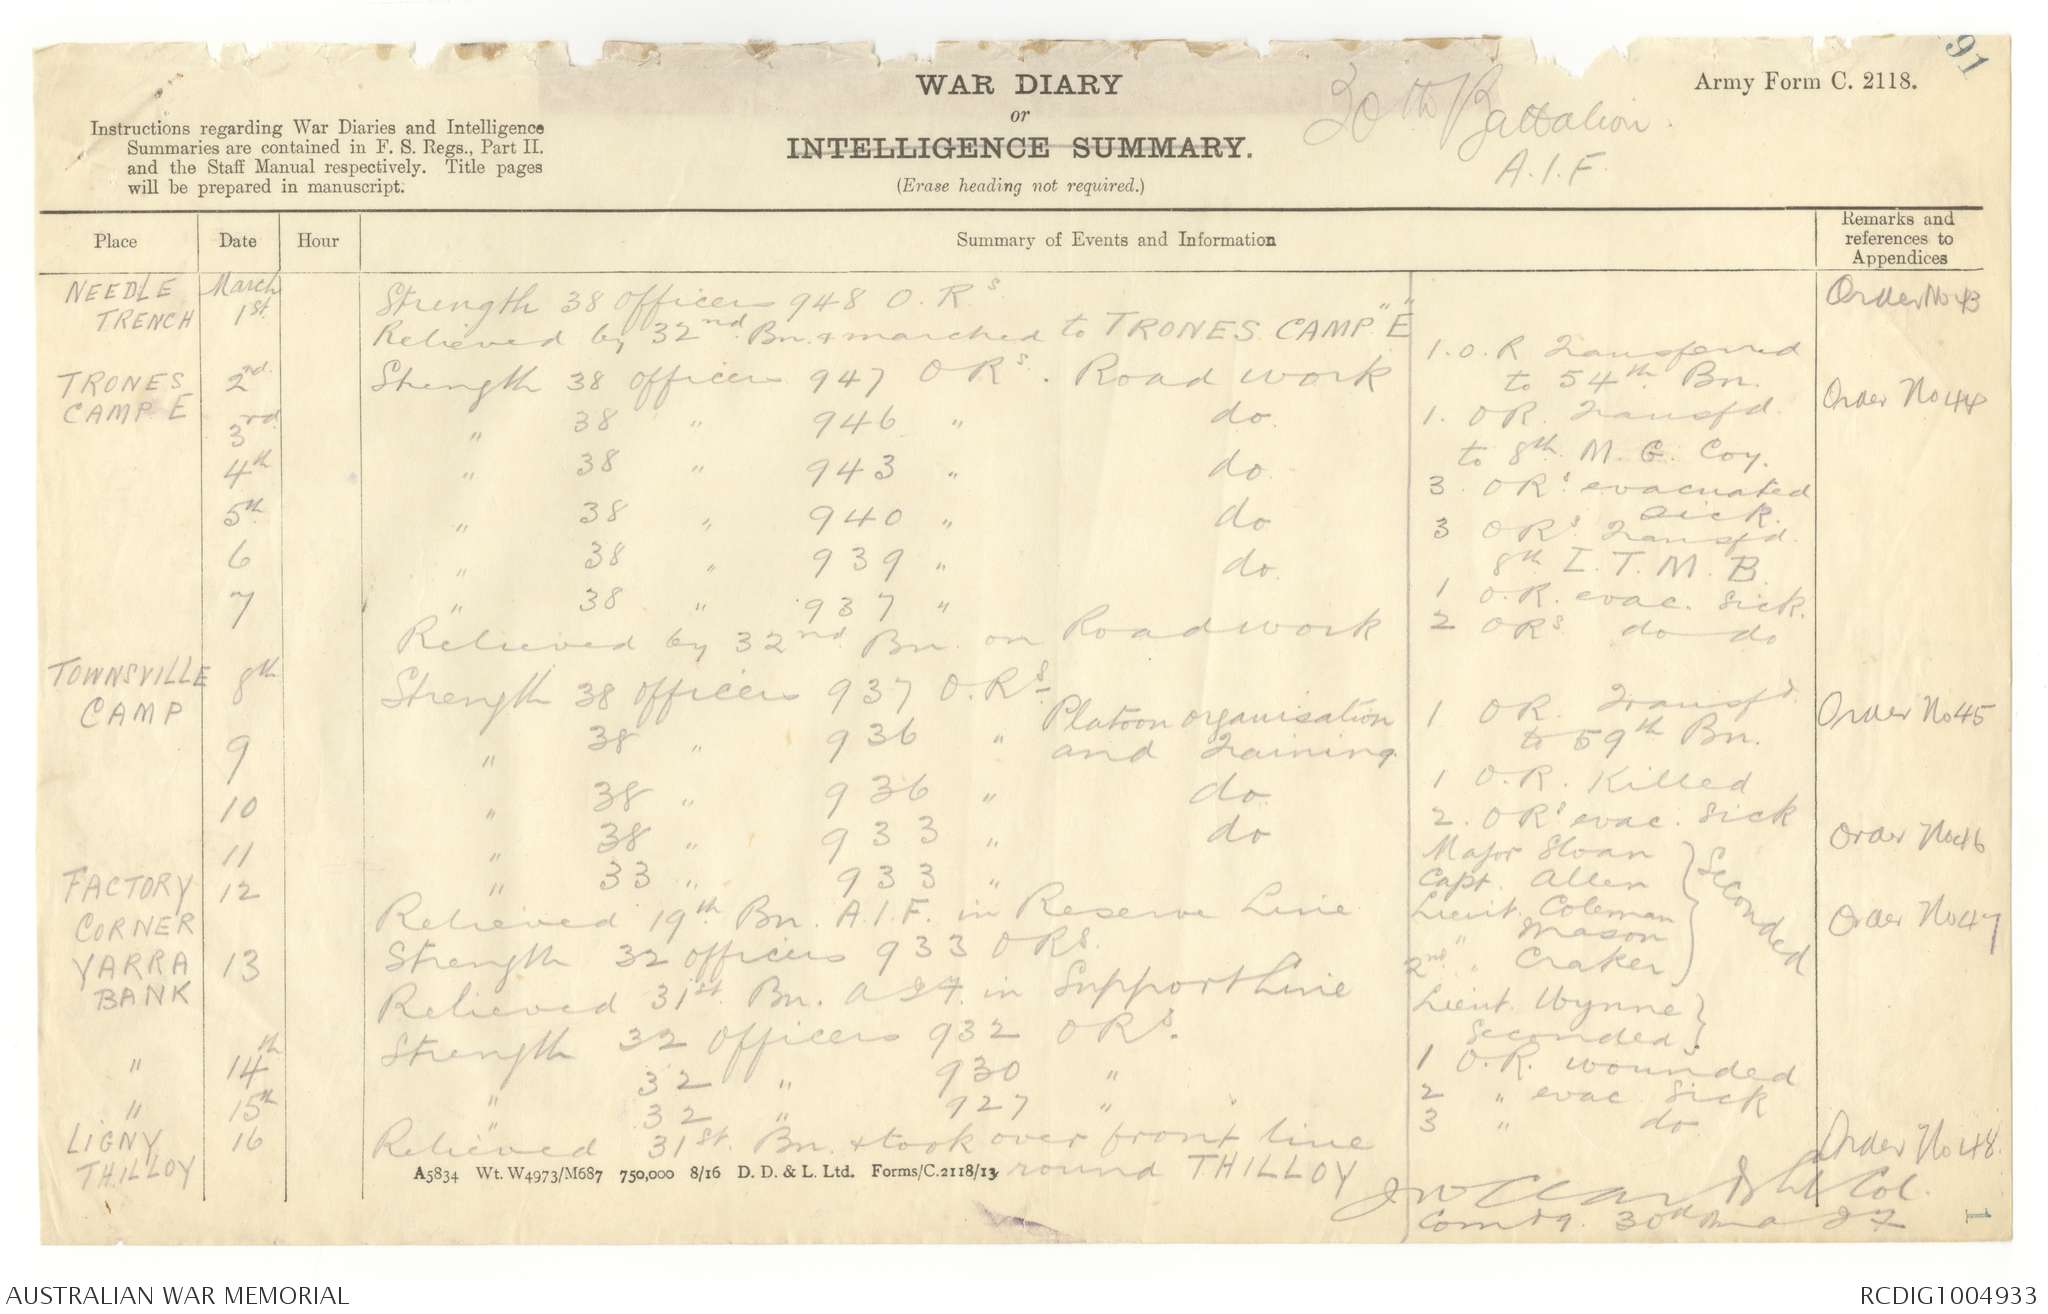 91
WAR DIARY
or
INTELLIGENCE SUMMARY.
(Erase heading not required.)
Army Form C. 2118.
30th Battalion.
A.I.F.
Instructions regarding War Diaries and Intelligence
Summaries are contained in F. S. Regs., Part II.
and the Staff Manual respectively. Title pages
will be prepared in manuscript.
Place Date Hour Summary of Events and Information Remarks and references to Appendices
NEEDLE TRENCH March 1st Strength 38 officers 948 O.Rs. Order No 43
Relieved by 32nd Bn. & marched to TRONES CAMP "E"
1. O.R Transferred
to 54th Bn.
TRONES CAMP E 2nd Strength 38 officers 947 ORs. Roadwork Order No 44
3rd " 38 " 946 " do. 1. OR. Transfd.
to 8th M. G. Coy.
4th " 38 " 943 " do. 3. ORs evacuated
sick.
5th " 38 " 940 " do 3 ORs Transfd.
8th L.T.M.B.
6 " 38 " 939 " do. 1 O.R. evac. sick.
7 " 38 " 937 " 2 ORs do do
Relieved by 32nd Bn. on Roadwork
TOWNSVILLE CAMP 8th Strength 38 officers 937 O.Rs. 1 OR. Transfd. Order No 45
to 59th Bn.
9 " 38 " 936 " Platoon organisation
and Training.
1 O.R. Killed
10 " 38 " 936 " do
2. ORs evac. Sick
11 " 38 " 933 " do Order No 46
12 " 33 " 933 "
Major Sloan
Capt. Allen
Lieut. Coleman
" Mason
2nd " Craker
Seconded
FACTORY CORNER Relieved 19th Bn. A.I.F. in Reserve Line Order No 47
YARRA BANK 13 Strength 32 officers 933 ORs.
Relieved 31st Bn. AIF. in Support Line
Lieut. Wynne
Seconded.
" 14th Strength 32 officers 932 ORs. 1 O.R. wounded
" 32 " 930 " 2 " evac. Sick
" 15th " 32 " 927 " 3 " do
LIGNY THILLOY 16 Relieved 31st. Bn. & took over front line Order No 48.
round THILLOY
A5834 Wt. W4973/M687 750,000 8/16 D. D. & L. Ltd. Forms/C.2118/13
J W Clark Lt Col.
Comdg. 30th Bn AIF
1
AUSTRALIAN WAR MEMORIAL
RCDIG1004933